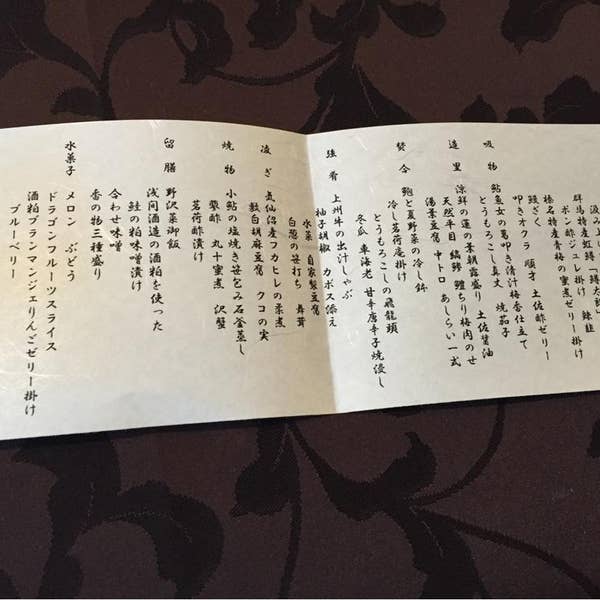 汲み上げ
群馬特産虹鱒「
ポン酢ジュレ掛け　辣韮
榛名特産青梅の蜜煮ゼリー掛け
鰻ざく
叩きオクラ　順才　土佐酢ゼリー
吸物　鮎魚女の葛叩き清汁梅香仕立て
とうもろこし真丈　焼茄子
造里　涼鮮の蓮の葉朝露盛り　土佐醤油
天然平目　縞鯵　鱧ちり梅肉のせ
湯葉豆腐　中トロ　あしらい一式
焚合　鮑と夏野菜の冷し鉢
冷し茗荷庵掛け
とうもろこしの飛龍頭
冬瓜　車海老　甘辛唐辛子焼浸し
強肴　上州牛の出汁しゃぶ
柚子胡椒　カボス添え
水菜　自家製豆腐
白葱の笹打ち　舞茸
凌ぎ　気仙沼産フカヒレの柔煮
敷白胡麻豆腐　クコの実
焼物　小鮎の塩焼き笹包み石釜蒸し
蓼酢　丸十蜜煮　沢蟹
茗荷酢漬け
留膳　野沢菜御飯
浅間酒造の酒粕を使った
鮭の粕味噌漬け
合わせ味噌
香の物三種盛り
水菓子　メロン　ぶどう
ドラゴンフルーツスライス
酒粕ブランマンジェりんごゼリー掛け
ブルーベリー